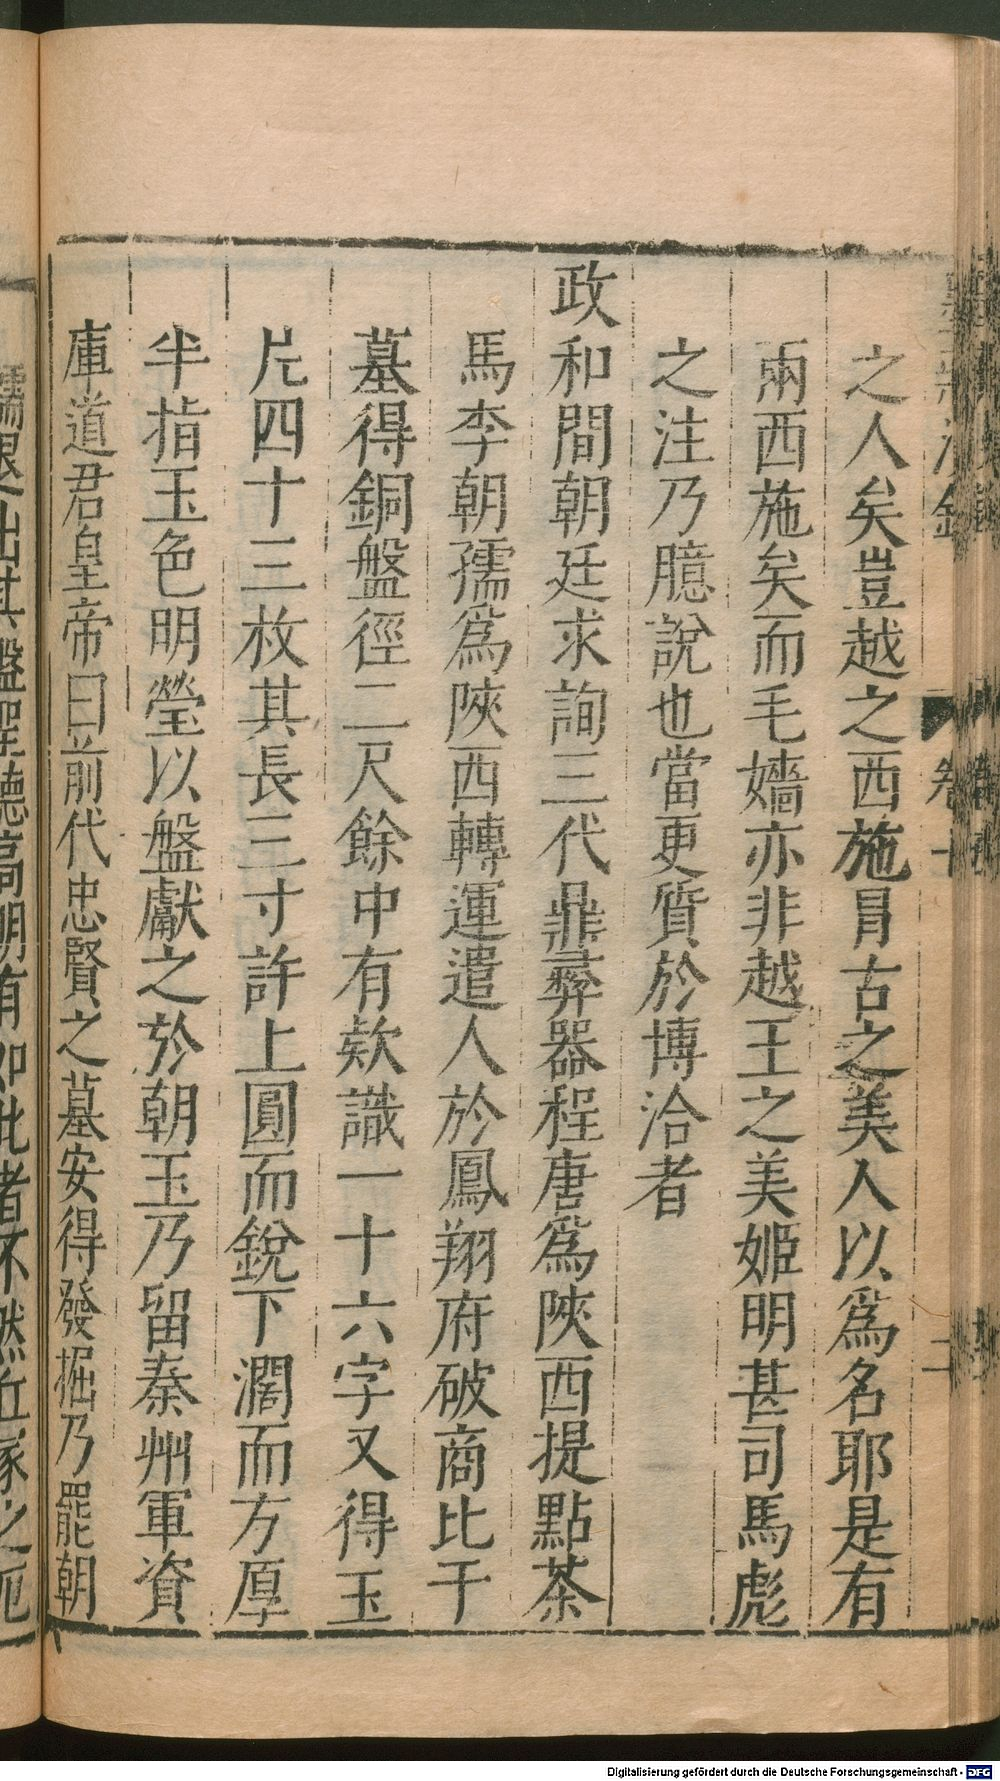 之人矣豈越之西施冒古之美人以爲名耶是有
兩西施矣而毛嬙亦非越王之美姬明甚司馬彪
之注乃臆說也當更質於博洽者
政和間朝廷求詢三代鼎彝器程唐爲陜西提點茶
馬李朝孺爲陜西轉運遣人於鳳翔府破商比干
墓得銅盤徑二尺餘中有欵識一十六字又得玉
片四十三枚其長三寸許上圓而銳下濶而方厚
半指玉色明瑩以盤獻之於朝玉乃留秦州軍資
庫道君皇帝曰前代忠賢之墓安得發掘乃罷朝
孺退出其盤聖德高明有如此者不然丘冢之厄
卷十
二
Digitalisierung gefördert durch die Deutsche Forschungsgemeinschaft - DFG